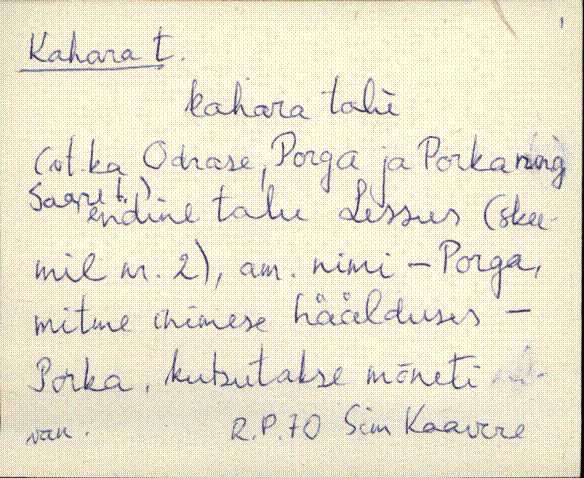 Kahara t.
kahara talu
(vt. ka Odrase, Porga ja Porka ning
Saare t.)
endine talu Lessus (skee-
mil nr. 2), am. nimi – Porga,
mitme inimese häälduses –
Porka, kutsutakse mõneti
van.
R.P. 70 Sim Kaavere